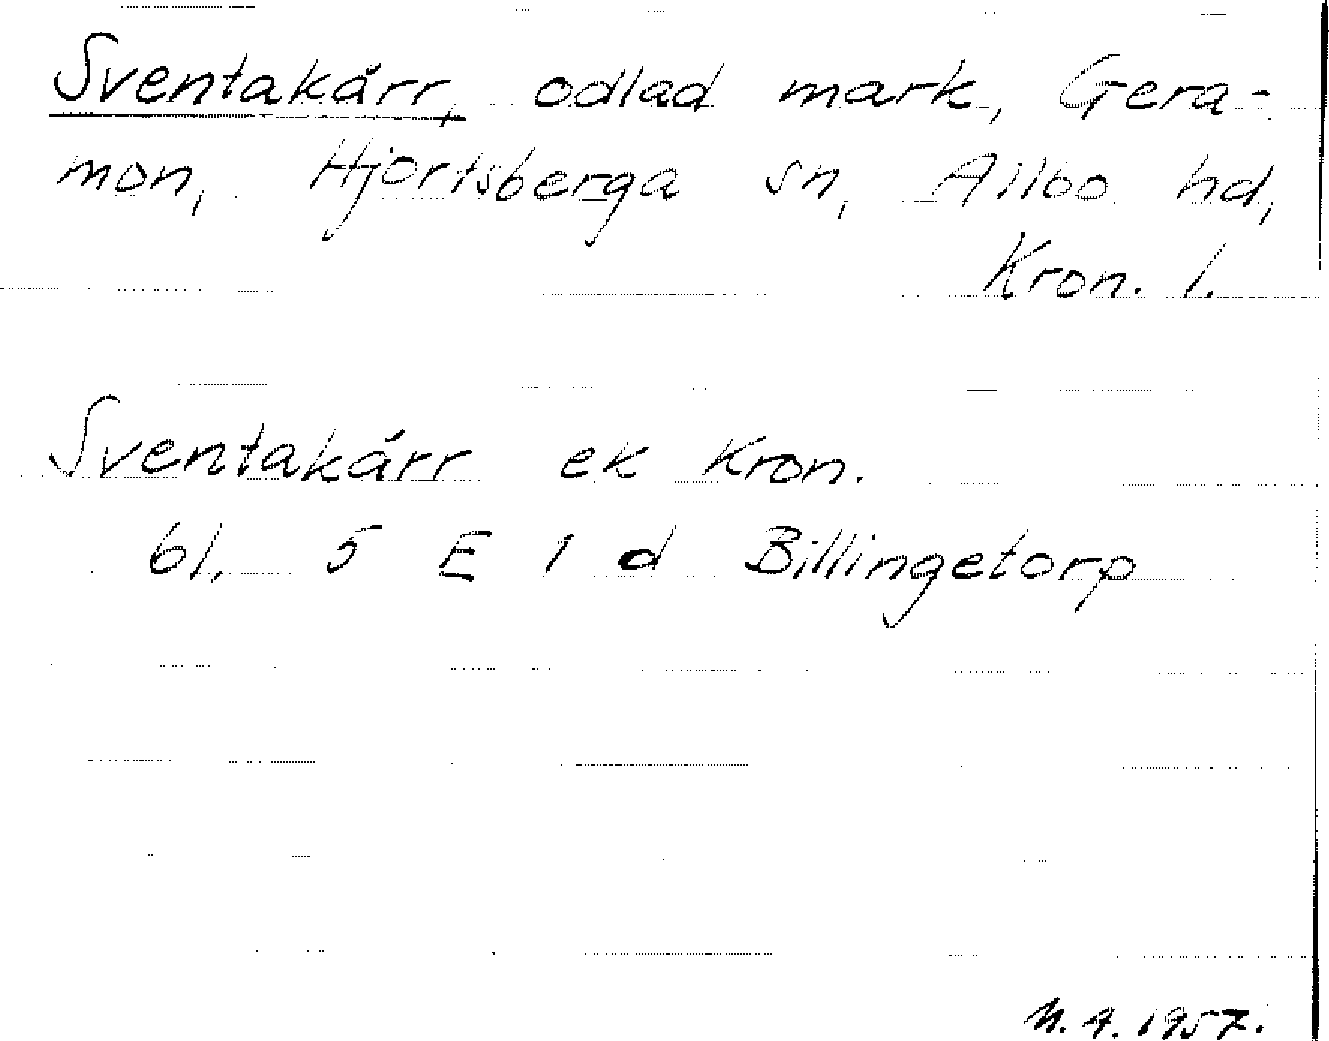 Sventakärr, odlad mark, Gera-
mon, Hjortsberga sn, Allbo hd,
Kron. l.
Sventakärr ek Kron.
bl. 5 E 1 d Billingetorp
N.A. 1957.